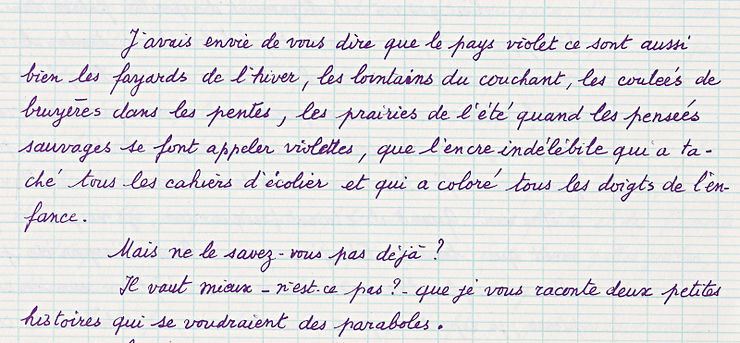 J'avais envie de vous dire que le pays violet ce sont aussi
bien les fayards de l'hiver, les lointains du couchant, les coulées de
bruyères dans les pentes, les prairies de l'été quand les pensées
sauvages se font appeler violettes, que l'encre indélébile qui a ta-
ché tous les cahiers d'écolier et qui a coloré tous les doigts de l'en-
fance.
Mais ne le savez-vous pas déjà ?
Il vaut mieux - n'est-ce pas ? - que je vous raconte deux petites
histoires qui se voudraient des paraboles.